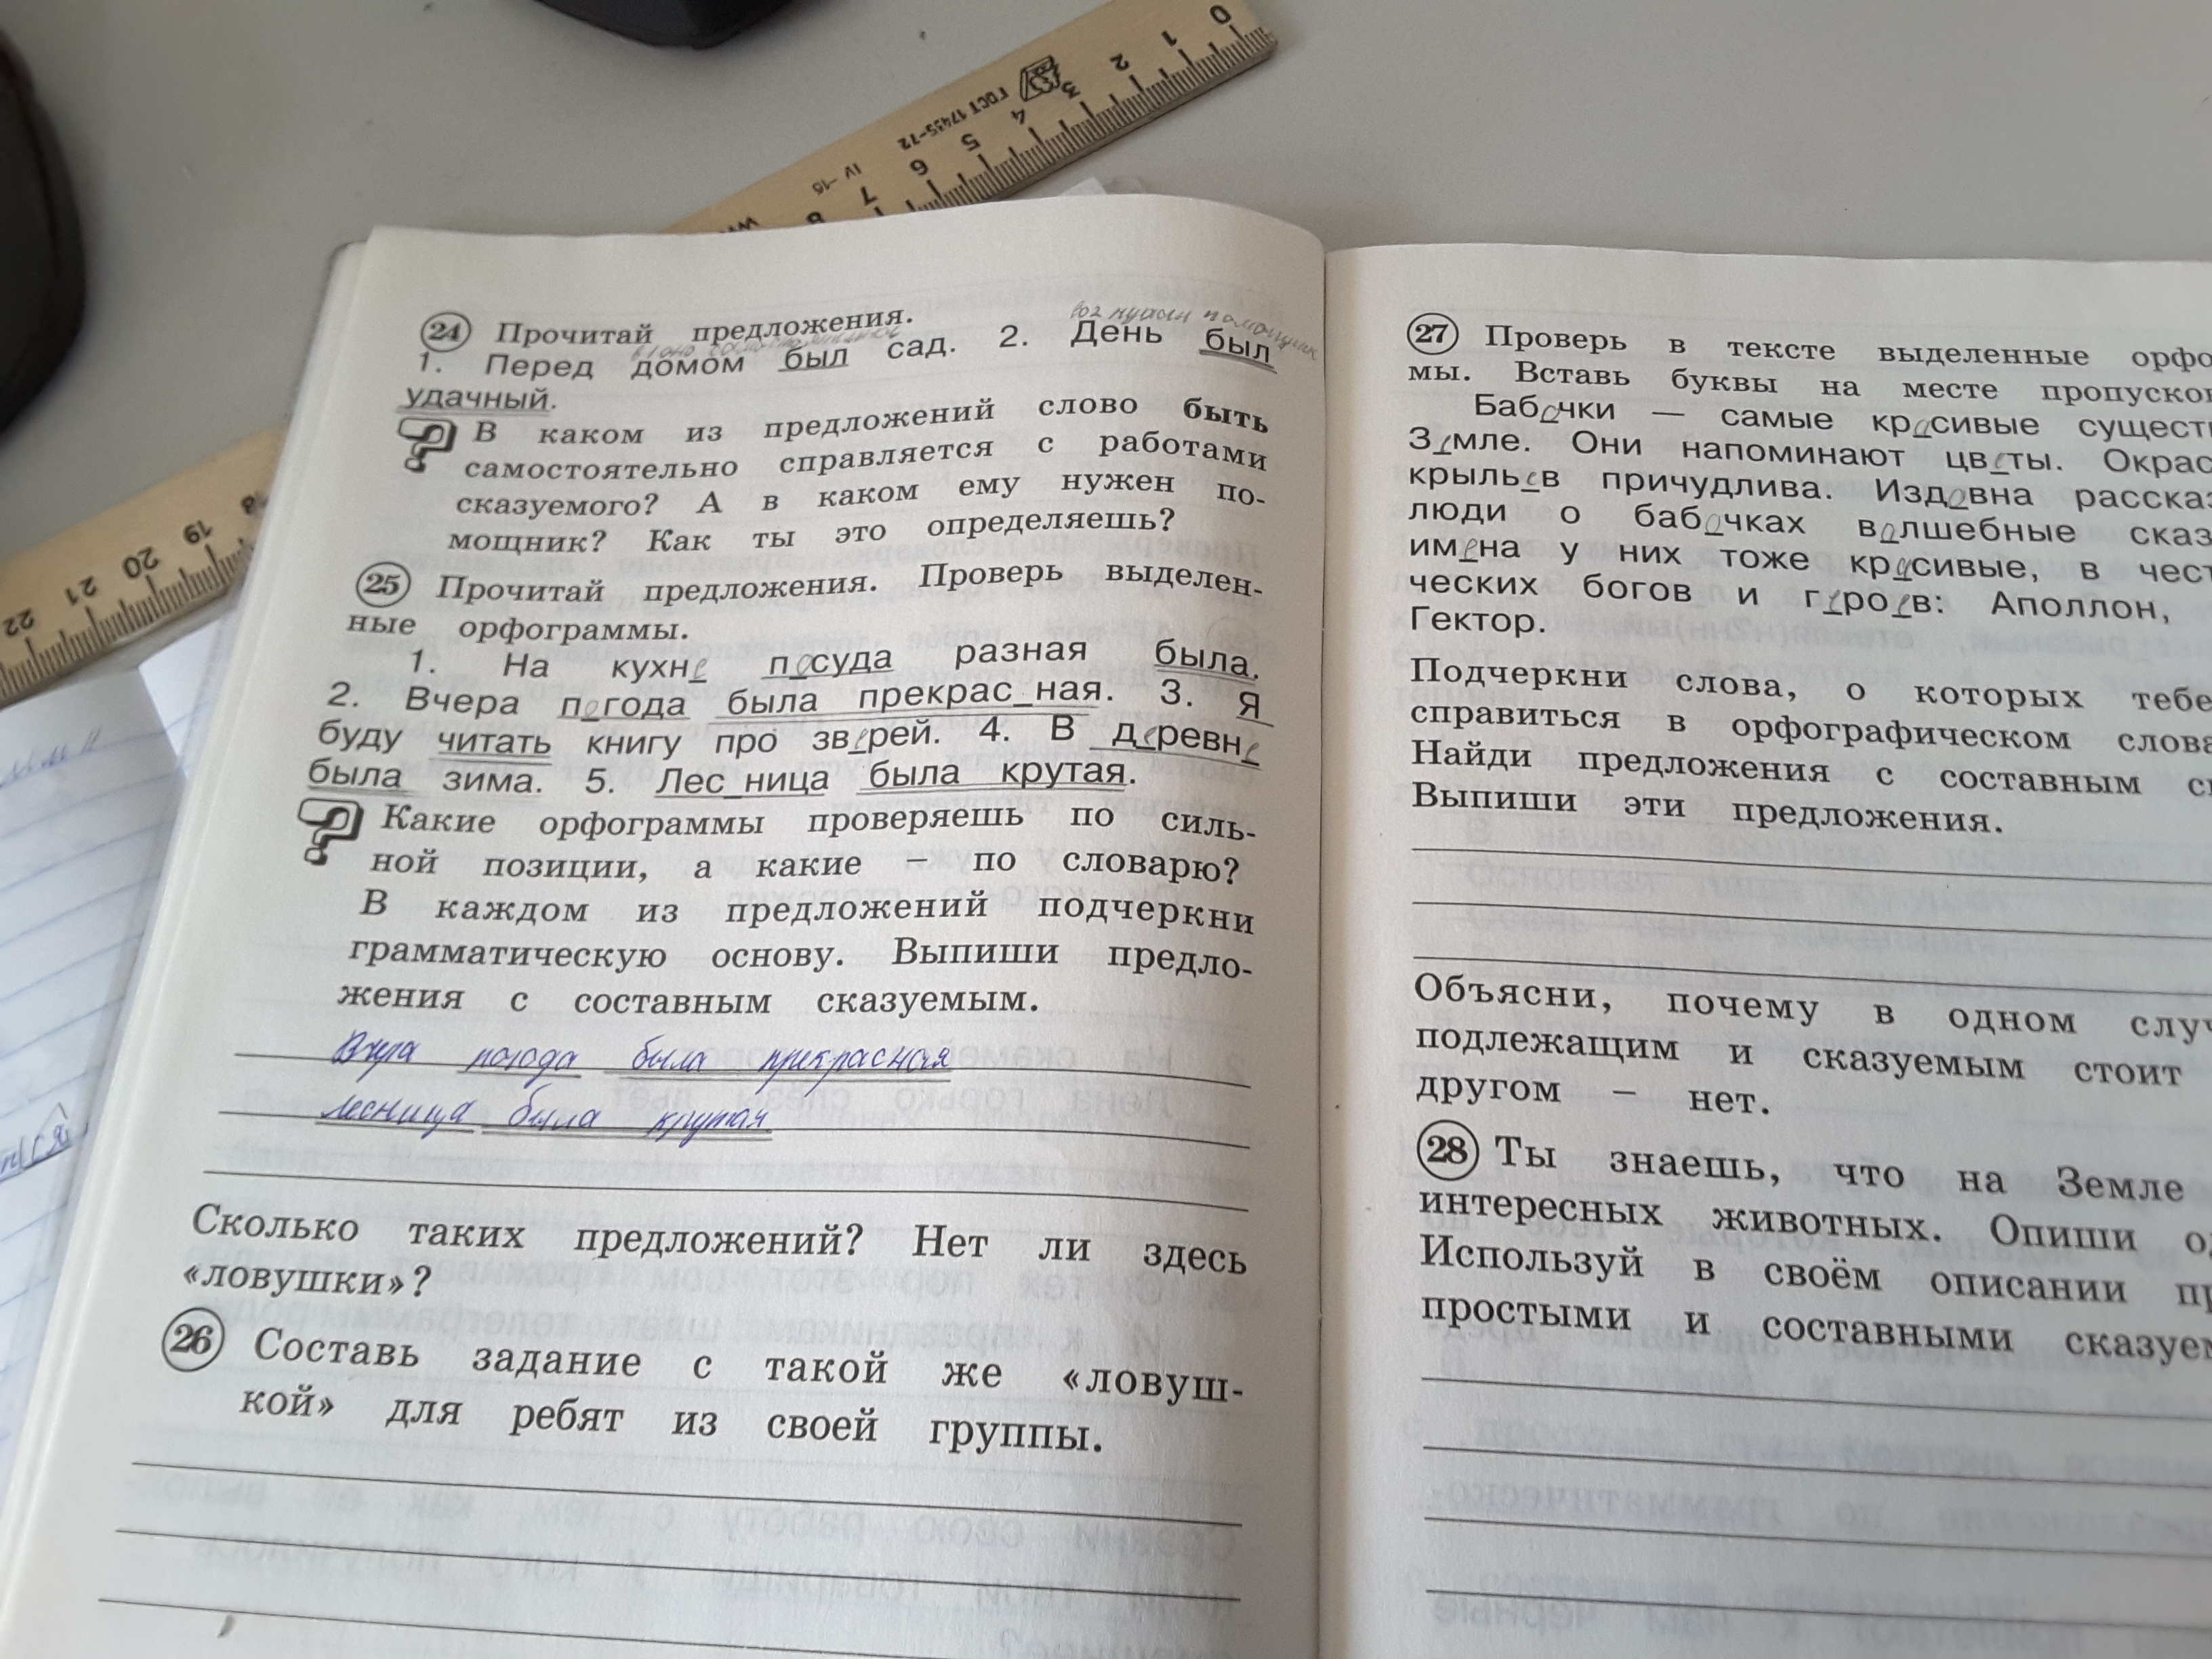 0 1 2 3 4 5 6 7 8
ГОСТ 17435-72
IV -15
18 19 20 21 22
24 Прочитай предложения.
воз нужен помощник
1. Перед домом был сад. 2. День был
удачный.
В каком из предложений слово быть
самостоятельно справляется с работами
сказуемого? А в каком ему нужен по-
мощник? Как ты это определяешь?
25 Прочитай предложения. Проверь выделен-
ные орфограммы.
1. На кухне посуда разная была.
2. Вчера погода была прекрас_ная. 3. Я
буду читать книгу про зверей. 4. В деревне
была зима. 5. Лес_ница была крутая.
Какие орфограммы проверяешь по силь-
ной позиции, а какие – по словарю?
В каждом из предложений подчеркни
грамматическую основу. Выпиши предло-
жения с составным сказуемым.
Вчера погода была прекрасная
лесница была крутая
Сколько таких предложений? Нет ли здесь
«ловушки»?
26 Составь задание с такой же «ловуш-
кой» для ребят из своей группы.
27 Проверь в тексте выделенные орфо
мы. Вставь буквы на месте пропусков
Бабочки — самые красивые сущест
Земле. Они напоминают цветы. Окрас
крыльев причудлива. Издовна расска
люди о бабочках волшебные сказ
имена у них тоже красивые, в чест
ческих богов и героев: Аполлон,
Гектор.
Подчеркни слова, о которых тебе
справиться в орфографическом слова
Найди предложения с составным с
Выпиши эти предложения.
Объясни, почему в одном случ
подлежащим и сказуемым стоит
другом – нет.
28 Ты знаешь, что на Земле
интересных животных. Опиши о
Используй в своём описании пр
простыми и составными сказуем